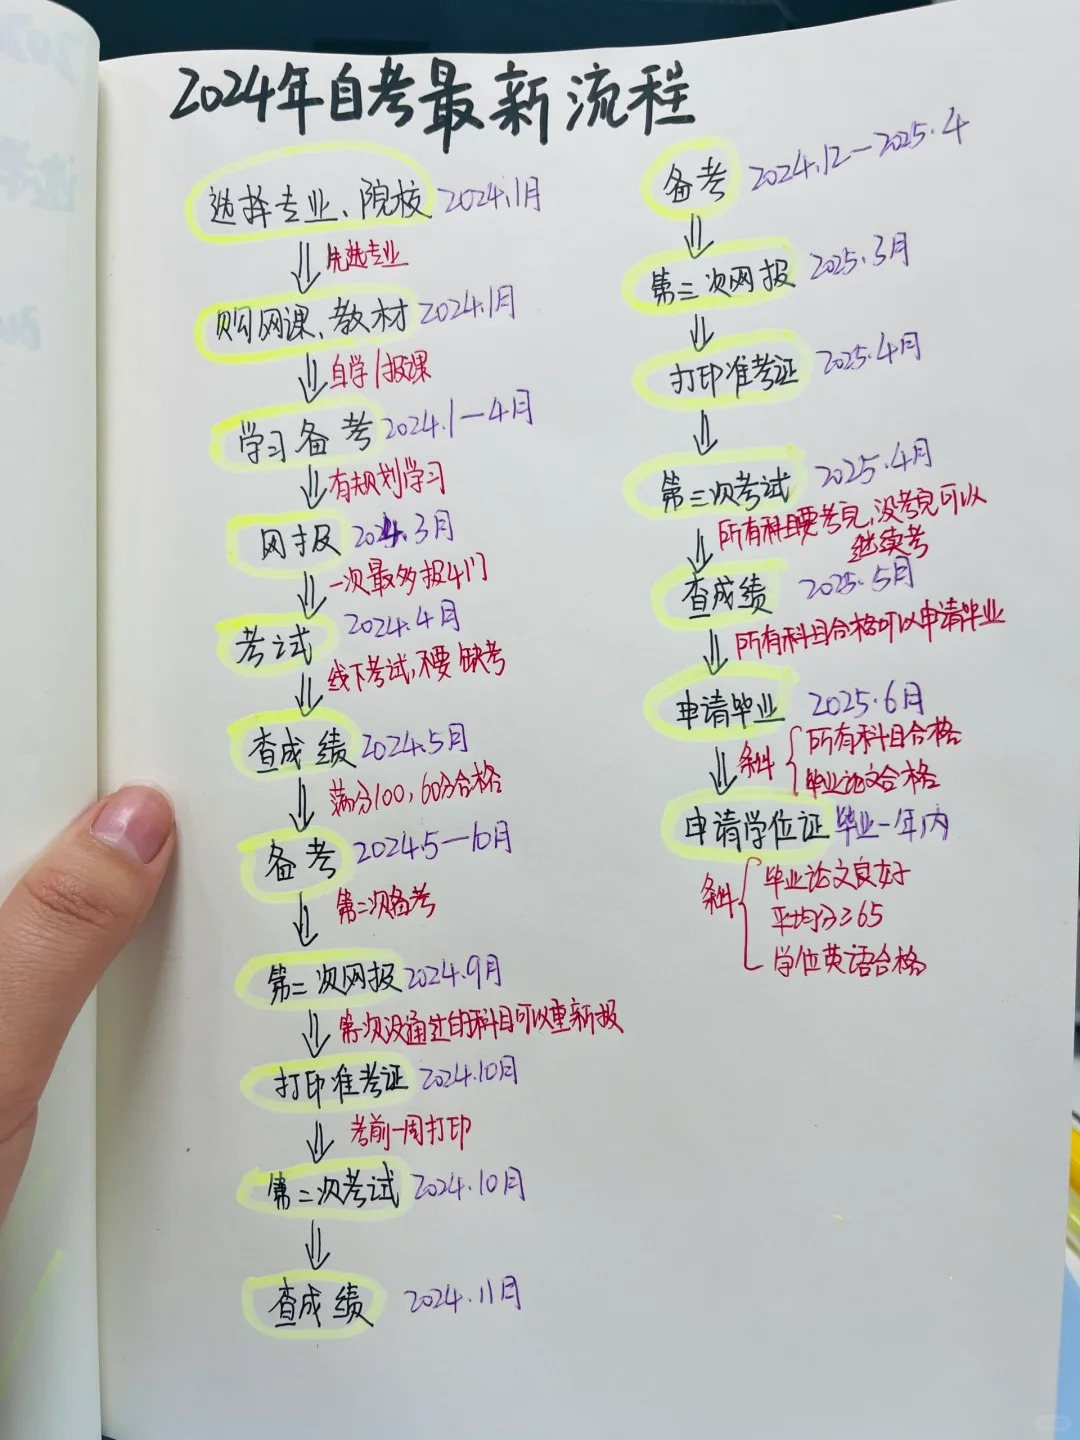 2024年自考最新流程
选择专业、院校 2024.1月
先选专业
购网课、教材 2024.1月
自学/报课
学习备考 2024.1—4月
有规划学习
网报 2024.3月
一次最多报4门
考试 2024.4月
线下考试,不要缺考
查成绩 2024.5月
满分100,60分合格
备考 2024.5—10月
第二次备考
第二次网报 2024.9月
第一次没通过的科目可以重新报
打印准考证 2024.10月
考前一周打印
第二次考试 2024.10月
查成绩 2024.11月
备考 2024.12—2025.4
第三次网报 2025.3月
打印准考证 2025.4月
第三次考试 2025.4月
所有科目要考完,没考完可以
继续考
查成绩 2025.5月
所有科目合格可以申请毕业
申请毕业 2025.6月
条件 所有科目合格
毕业论文合格
申请学位证 毕业一年内
条件 毕业论文良好
平均分≥65
学位英语合格